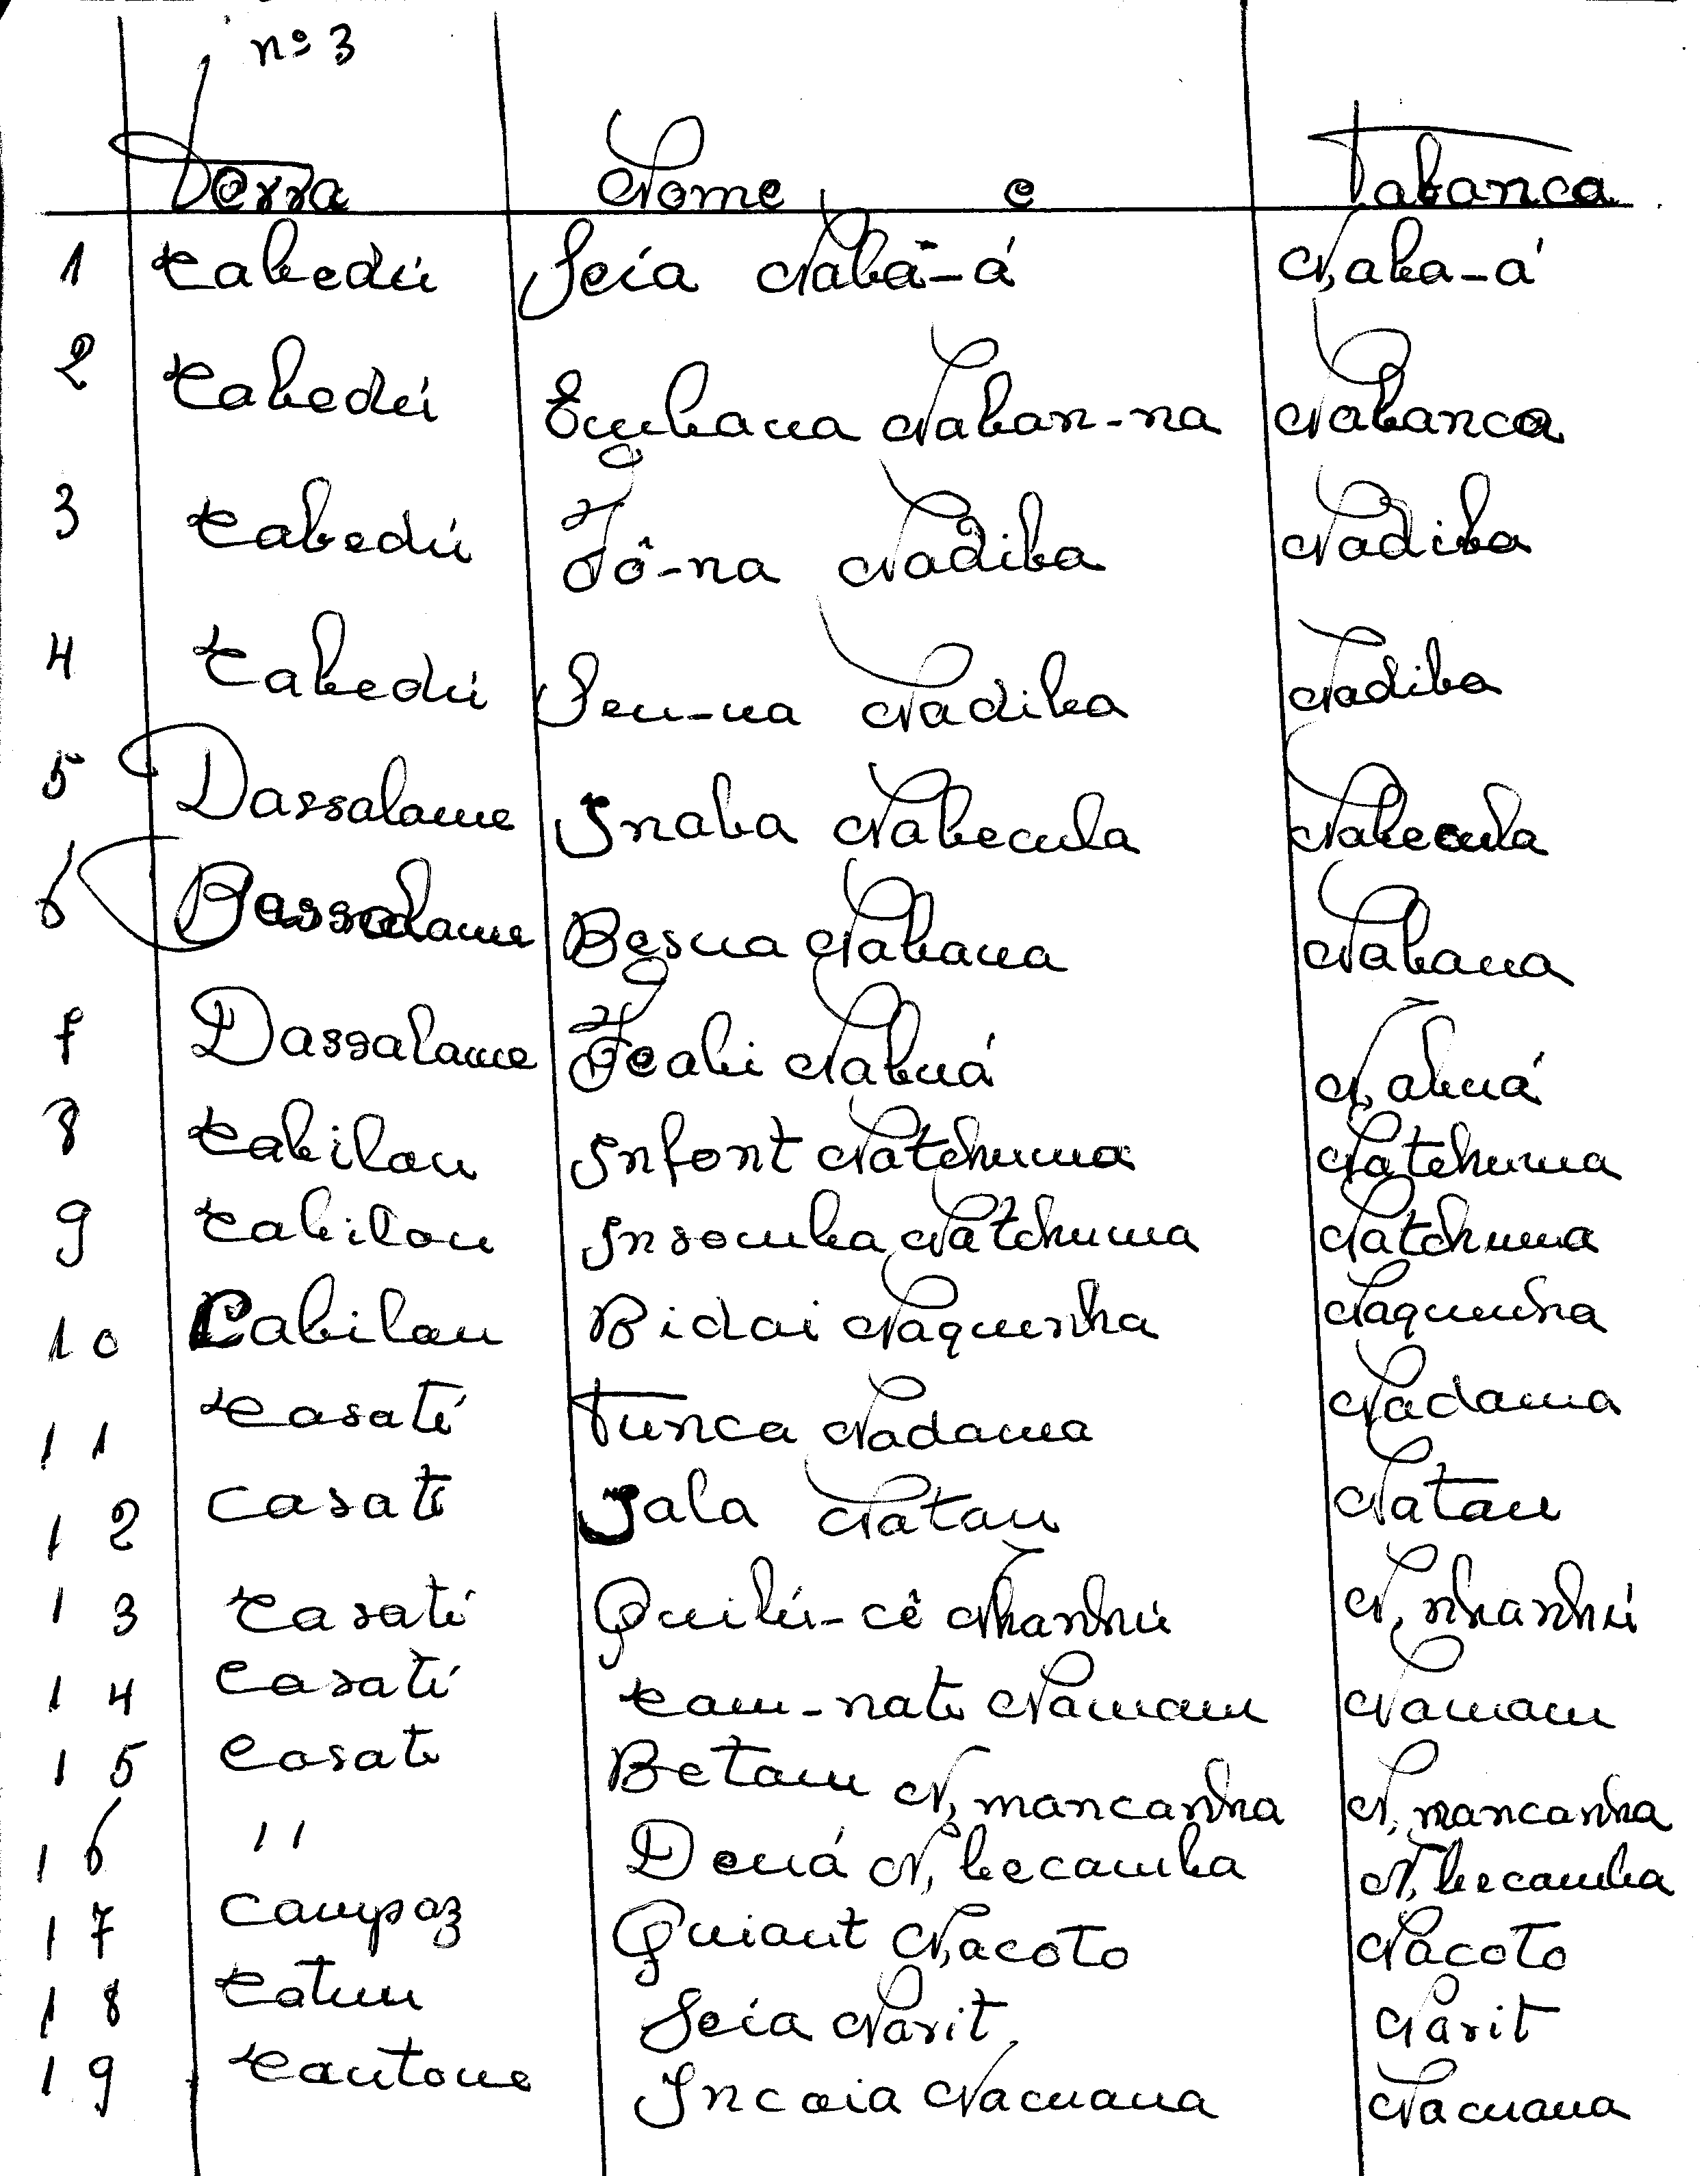 nº 3
Terra Nome e Tabanca
1 Cabedú Seía Nabã-á N,aba-á
2 Cabedú Embana Naban-na Nabanca
3 Cabedú Fô-na Nadiba Nadiba
4 Cabedú Sen-na Nadiba Nadiba
5 Dassalame Inaba Nabecula Nabecula
6 Dassalame Besna Nabana Nabana
7 Dassalame Feabi Nabuá N,abuá
8 Cabilou Infont Natchuma Natchuma
9 Cabilou Insomba Natchuma Natchuma
10 Cabilau Bidai Naquenha Naquenha
11 Casatí Tunca Nadama Nadama
12 Casati Jala Natan Natan
13 Casatí Quilú-cê Nhanhú N,nhanhú
14 Casatí Cam-nate Namam Namam
15 Casati Betam N,mancanha N,mancanha
16 " Dená N,becamba N,becamba
17 Campaz Quiaut N,acoto Nacoto
18 Catum Seía Narit Narit
19 Cantone Incaia Nacuana Nacuana